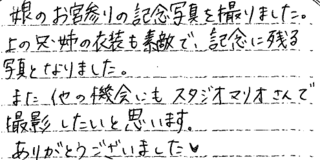 娘のお宮参りの記念写真を撮りました。
上の兄・姉の衣装も素敵で、記念に残る
写真となりました。
また他の機会にもスタジオマリオさんで
撮影したいと思います。
ありがとうございました♥